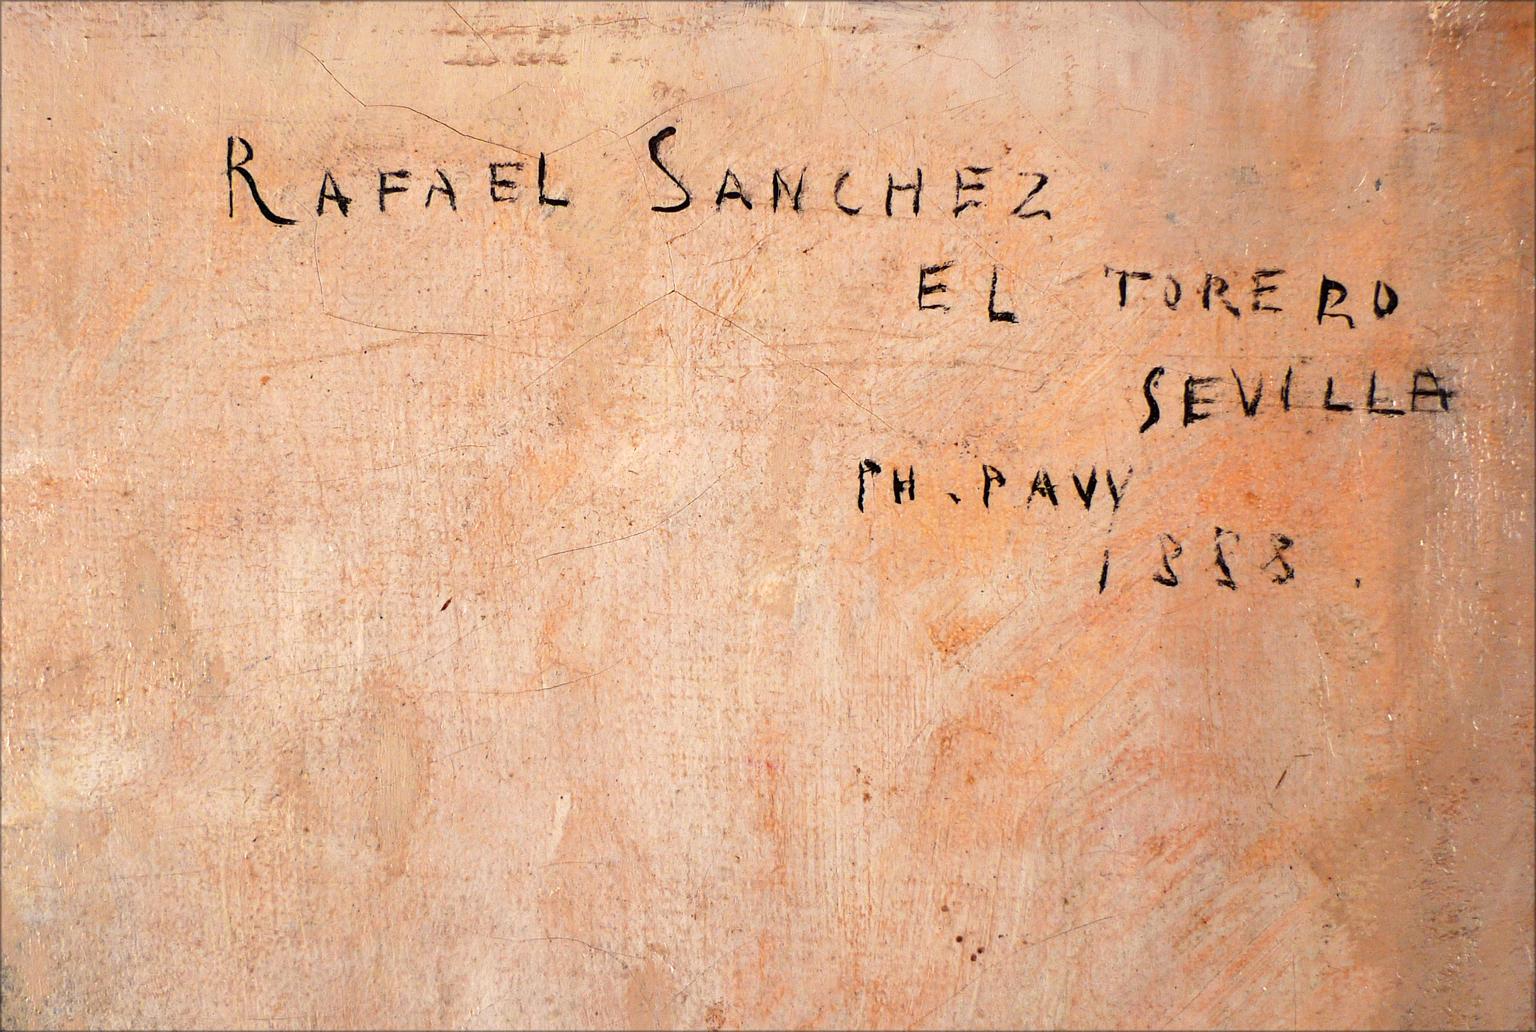 RAFAEL SANCHEZ
EL TORERO
SEVILLA
PH. PAVY
1888.